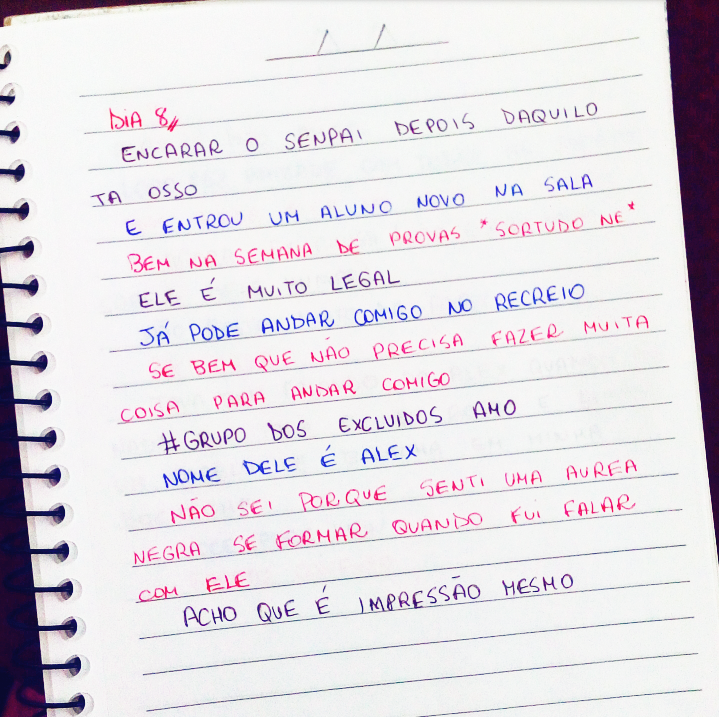 DIA 8,,
ENCARAR O SENPAI DEPOIS DAQUILO
TA OSSO
E ENTROU UM ALUNO NOVO NA SALA
BEM NA SEMANA DE PROVAS *SORTUDO NE*
ELE É MUITO LEGAL
JÁ PODE ANDAR COMIGO NO RECREIO
SE BEM QUE NÃO PRECISA FAZER MUITA
COISA PARA ANDAR COMIGO
#GRUPO DOS EXCLUIDOS AMO
NOME DELE É ALEX
NÃO SEI PORQUE SENTI UMA AUREA
NEGRA SE FORMAR QUANDO FUI FALAR
COM ELE
ACHO QUE É IMPRESSÃO MESMO